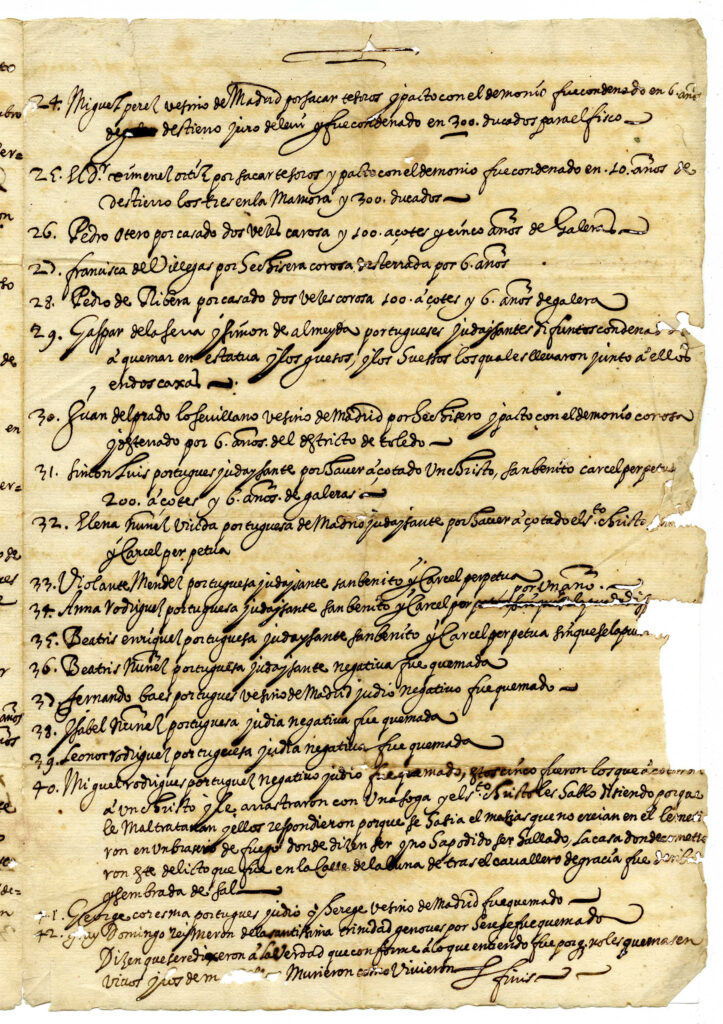 24. Miguel perez vesino de Madrid por sacar tesoros y pacto con el demonio fue condenado en 6. años
destierro juro de levi y fue condenado en 300. ducados para el fisco
25. El D.r ximenez ortiz por sacar tesoros y pacto con el demonio fue condenado en .10. años de
destierro los tres en la Mamora y 300. ducados
26. Pedro Otero por casado dos veses corosa y 100. açotes y cinco años de Galeras
27. francisca de Villegas por hechisera corosa desterrada por 6. años
28. Pedro de Ribera por casado dos veses corosa 100. açotes y 6. años de galera
29. Gaspar de la serra y simon de almeyda portugueses judaysantes difuntos condena
á quemar en estatua y los guesos, y los huessos los quales llevaron junto a ellos
en dos caxas
30. Juan del prado lo sevillano vesino de Madrid por hechisero y pacto con el demonio corosa
y desterrado por 6. años. del districto de toledo
31. Simon Luis portugues judaysante por haver açotado Un christo, sanbenito carcel perpetu
200. açotes y 6. años. de galeras
32. Elena Nuñez Viuda portuguesa de Madrid judaysante por haver açotado el s.to christo
y Carcel perpetua
33. Violante Mendez portuguesa judaysante sanbenito y Carcel perpetua
por Un año.
34. Anna rodriguez portuguesa judaysante sanbenito y Carcel
35. Beatris enriquez portuguesa judaysante sanbenito y Carcel perpetua sin que se la
36. Beatris Nuñez portuguesa judaysante negativa fue quemada
37. fernando baes portugues vesino de Madrid judio negativo fue quemado
38. Isabel Nuñez portuguesa judia negativa fue quemada
39. Leonor rodriguez portuguesa judia negativa fue quemada
40. Miguel rodrigues portuguez negativo judio fue quemado, estos cinco fueron los que açotaron
á un christo y le arrastraron con Una soga y el s.to christo les hablo disiendo porque
le Maltratavan y ellos respondieron porque se hasia el mesias que no creian en el le metie
ron en un brasero de fuego donde dizen ser y no ha podido ser hallado, la casa donde cometie
ron este delicto que fue en la Calle de la luna de tras el cavallero de gracia fue
y sembrada de sal
41. George coresma portugues judio y herege vesino de Madrid fue quemado
42. fray Domingo de la santissima trinidad genoves por fue quemado
Dizen que se reduxeron á la Verdad que conforme á lo que entiendo fue por q no les quemasen
vivos Murieron como Vivieron finis